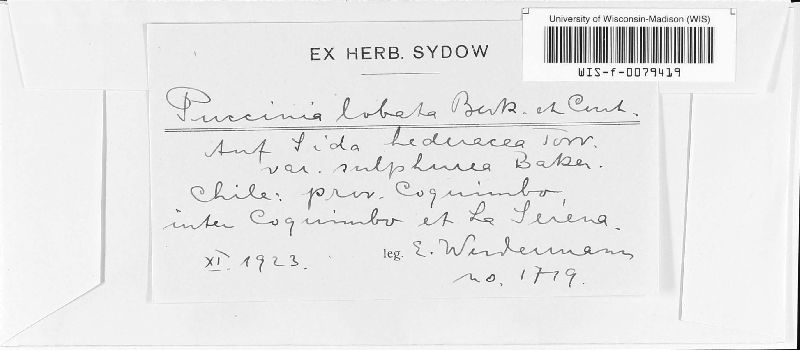 University of Wisconsin-Madison (WIS)
WIS-f-0079419
EX HERB. SYDOW
Puccinia lobata Berk. et Curt.
Auf Sida hederacea Torr.
var. sulphurea Baker.
Chile: prov. Coquimbo,
inter Coquimbo et La Serena.
XI. 1923. leg. E. Werdermann
no. 1719.